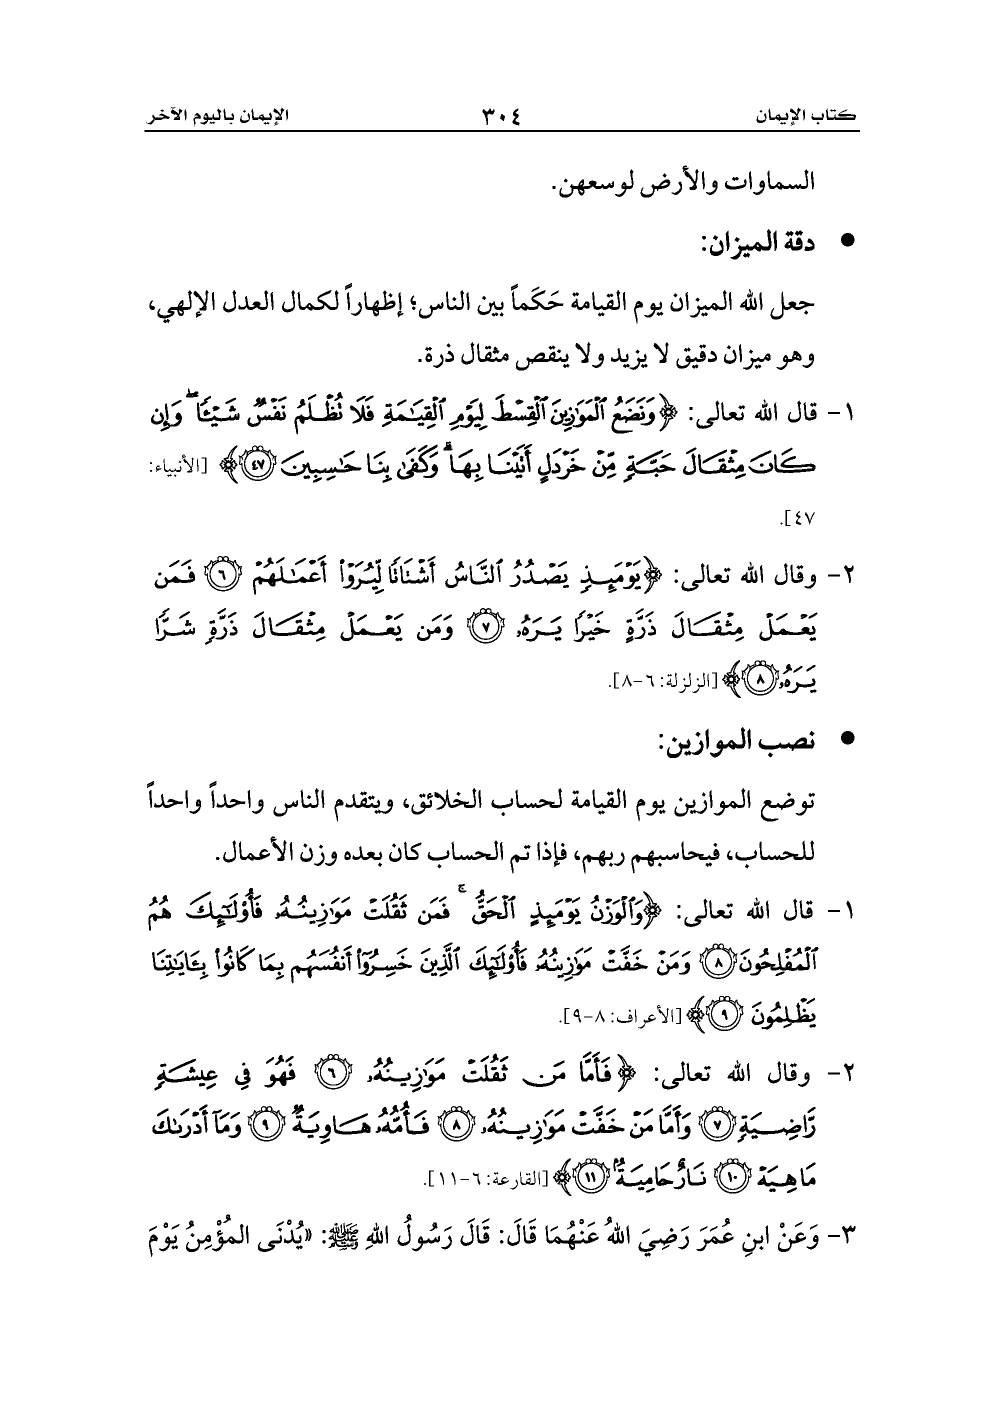 كتاب الإيمان ٣٠٤ الإيمان باليوم الآخر
السماوات والأرض لوسعهن.
● دقة الميزان:
جعل الله الميزان يوم القيامة حَكَماً بين الناس؛ إظهاراً لكمال العدل الإلهي،
وهو ميزان دقيق لا يزيد ولا ينقص مثقال ذرة.
١- قال الله تعالى: ﴿وَنَضَعُ ٱلْمَوَٰزِينَ ٱلْقِسْطَ لِيَوْمِ ٱلْقِيَٰمَةِ فَلَا تُظْلَمُ نَفْسٌ شَيْـًٔا ۖ وَإِن
كَانَ مِثْقَالَ حَبَّةٍ مِّنْ خَرْدَلٍ أَتَيْنَا بِهَا ۗ وَكَفَىٰ بِنَا حَٰسِبِينَ ٤٧﴾ [الأنبياء:
٤٧].
٢- وقال الله تعالى: ﴿يَوْمَئِذٍ يَصْدُرُ ٱلنَّاسُ أَشْتَاتًا لِّيُرَوْا۟ أَعْمَٰلَهُمْ ٦ فَمَن
يَعْمَلْ مِثْقَالَ ذَرَّةٍ خَيْرًا يَرَهُۥ ٧ وَمَن يَعْمَلْ مِثْقَالَ ذَرَّةٍ شَرًّا
يَرَهُۥ ٨﴾ [الزلزلة: ٦-٨].
● نصب الموازين:
توضع الموازين يوم القيامة لحساب الخلائق، ويتقدم الناس واحداً واحداً
للحساب، فيحاسبهم ربهم، فإذا تم الحساب كان بعده وزن الأعمال.
١- قال الله تعالى: ﴿وَٱلْوَزْنُ يَوْمَئِذٍ ٱلْحَقُّ ۚ فَمَن ثَقُلَتْ مَوَٰزِينُهُۥ فَأُو۟لَٰٓئِكَ هُمُ
ٱلْمُفْلِحُونَ ٨ وَمَنْ خَفَّتْ مَوَٰزِينُهُۥ فَأُو۟لَٰٓئِكَ ٱلَّذِينَ خَسِرُوٓا۟ أَنفُسَهُم بِمَا كَانُوا۟ بِـَٔايَٰتِنَا
يَظْلِمُونَ ٩﴾ [الأعراف: ٨-٩].
٢- وقال الله تعالى: ﴿فَأَمَّا مَن ثَقُلَتْ مَوَٰزِينُهُۥ ٦ فَهُوَ فِى عِيشَةٍ
رَّاضِيَةٍ ٧ وَأَمَّا مَنْ خَفَّتْ مَوَٰزِينُهُۥ ٨ فَأُمُّهُۥ هَاوِيَةٌ ٩ وَمَآ أَدْرَىٰكَ
مَا هِيَهْ ١٠ نَارٌ حَامِيَةٌۢ ١١﴾ [القارعة: ٦-١١].
٣- وَعَنْ ابنِ عُمَرَ رَضِيَ اللهُ عَنْهُمَا قَالَ: قَالَ رَسُولُ اللهِ ﷺ: «يُدْنَى المُؤْمِنُ يَوْمَ